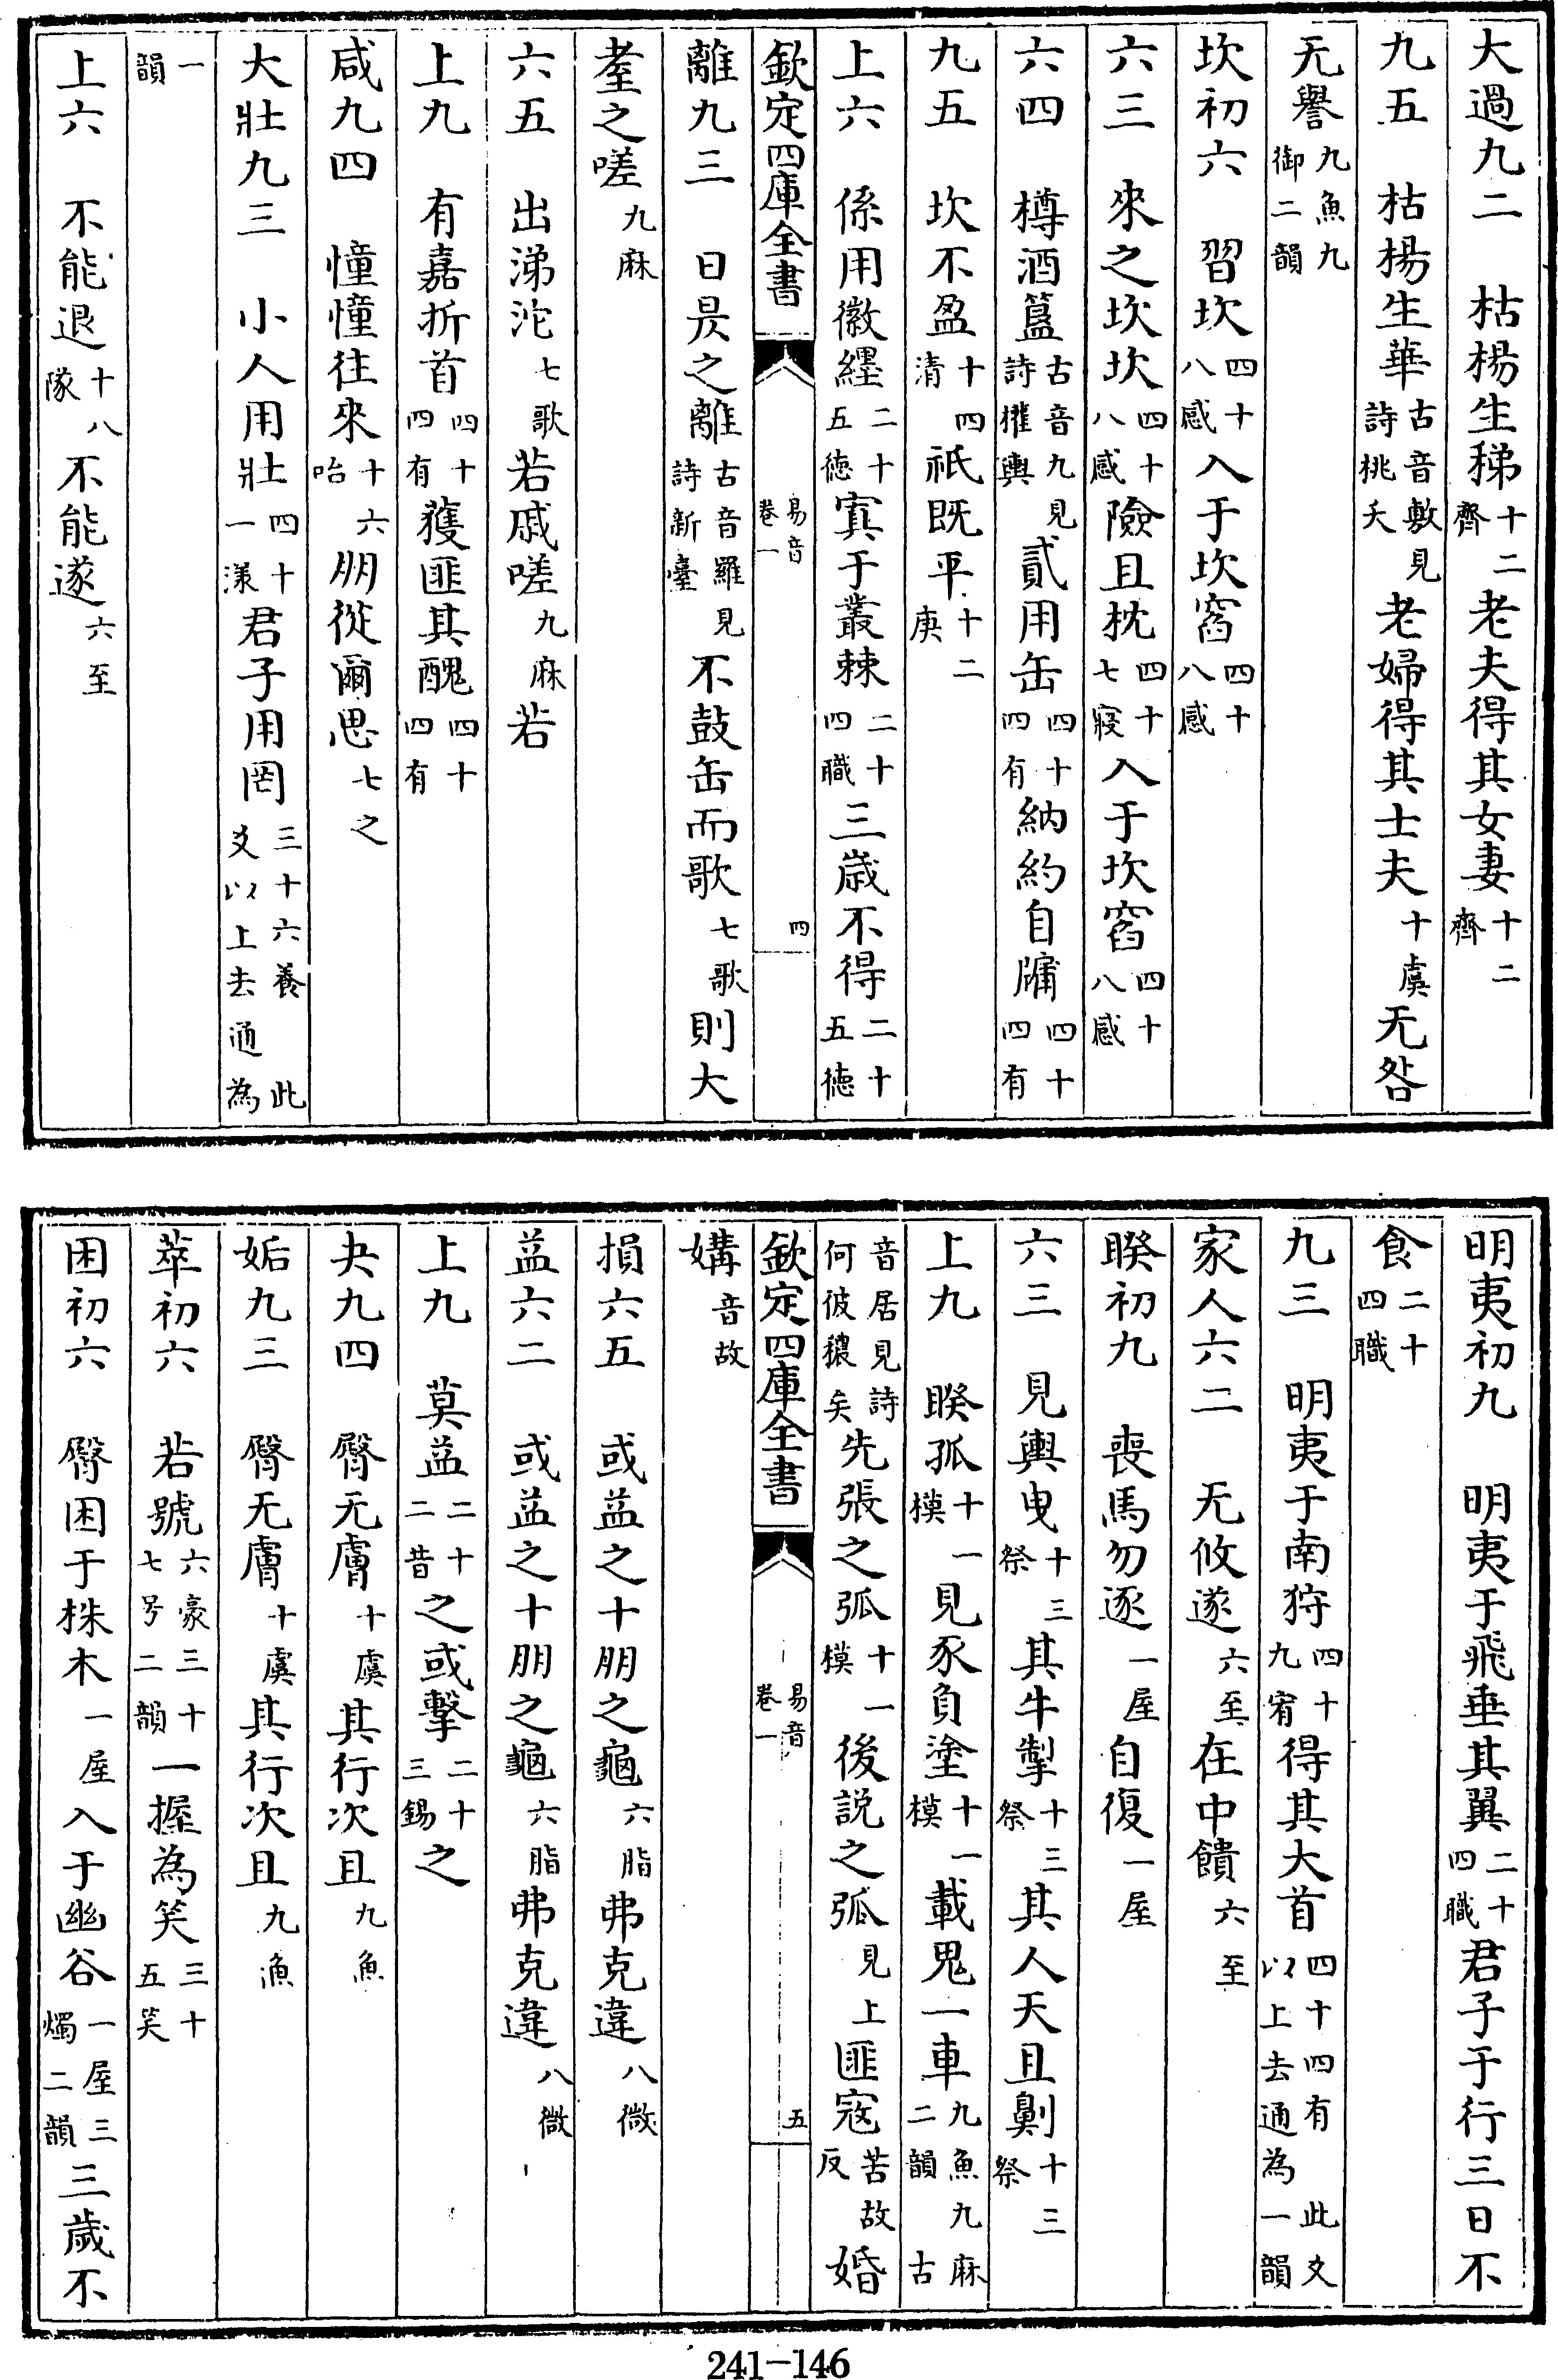 大過九二　枯楊生稊十二齊老夫得其女妻十二齊
九五　枯楊生華古音敷見詩桃夭老婦得其士夫十虞无咎
无譽九魚九御二韻
坎初六　習坎四十八感入于坎窞四十八感
六三　來之坎坎四十八感險且枕四十七寑入于坎窞四十八感
六四　樽酒簋古音九見詩權輿貳用缶四十四有納約自牖四十四有
九五　坎不盈十四清祇既平十二庚
上六　係用徽纆二十五德寘于叢棘二十四職三歲不得二十五德
欽定四庫全書　易音卷一　四
離九三　日昃之離古音羅見詩新臺不鼓缶而歌七歌則大
耋之嗟九麻
六五　出涕沱七歌若戚嗟九麻若
上九　有嘉折首四十四有獲匪其醜四十四有
咸九四　憧憧往來十六咍朋從爾思七之
大壯九三　小人用壯四十一漾君子用罔三十六養　此爻以上去通為
一韻
上六　不能退十八隊不能遂六至
明夷初九　明夷于飛垂其翼二十四職君子于行三日不
食二十四職
九三　明夷于南狩四十九宥得其大首四十四有　此爻以上去通為一韻
家人六二　无攸遂六至在中饋六至
睽初九　喪馬勿逐一屋自復一屋
六三　見輿曳十三祭其牛掣十三祭其人天且劓十三祭
上九　睽孤十一模見豕負塗十一模載鬼一車九魚九麻二韻古
音居見詩何彼穠矣先張之弧十一模後說之弧見上匪寇苦故反婚
欽定四庫全書　易音卷一　五
媾音故
損六五　或益之十朋之龜六脂弗克違八微
益六二　或益之十朋之龜六脂弗克違八微
上九　莫益二十二昔之或擊二十三錫之
夬九四　臀无膚十虞其行次且九魚
姤九三　臀无膚十虞其行次且九漁
萃初六　若號六豪三十七号二韻一握為笑三十五笑
困初六　臀困于株木一屋入于幽谷一屋三燭二韻三歲不
241-146